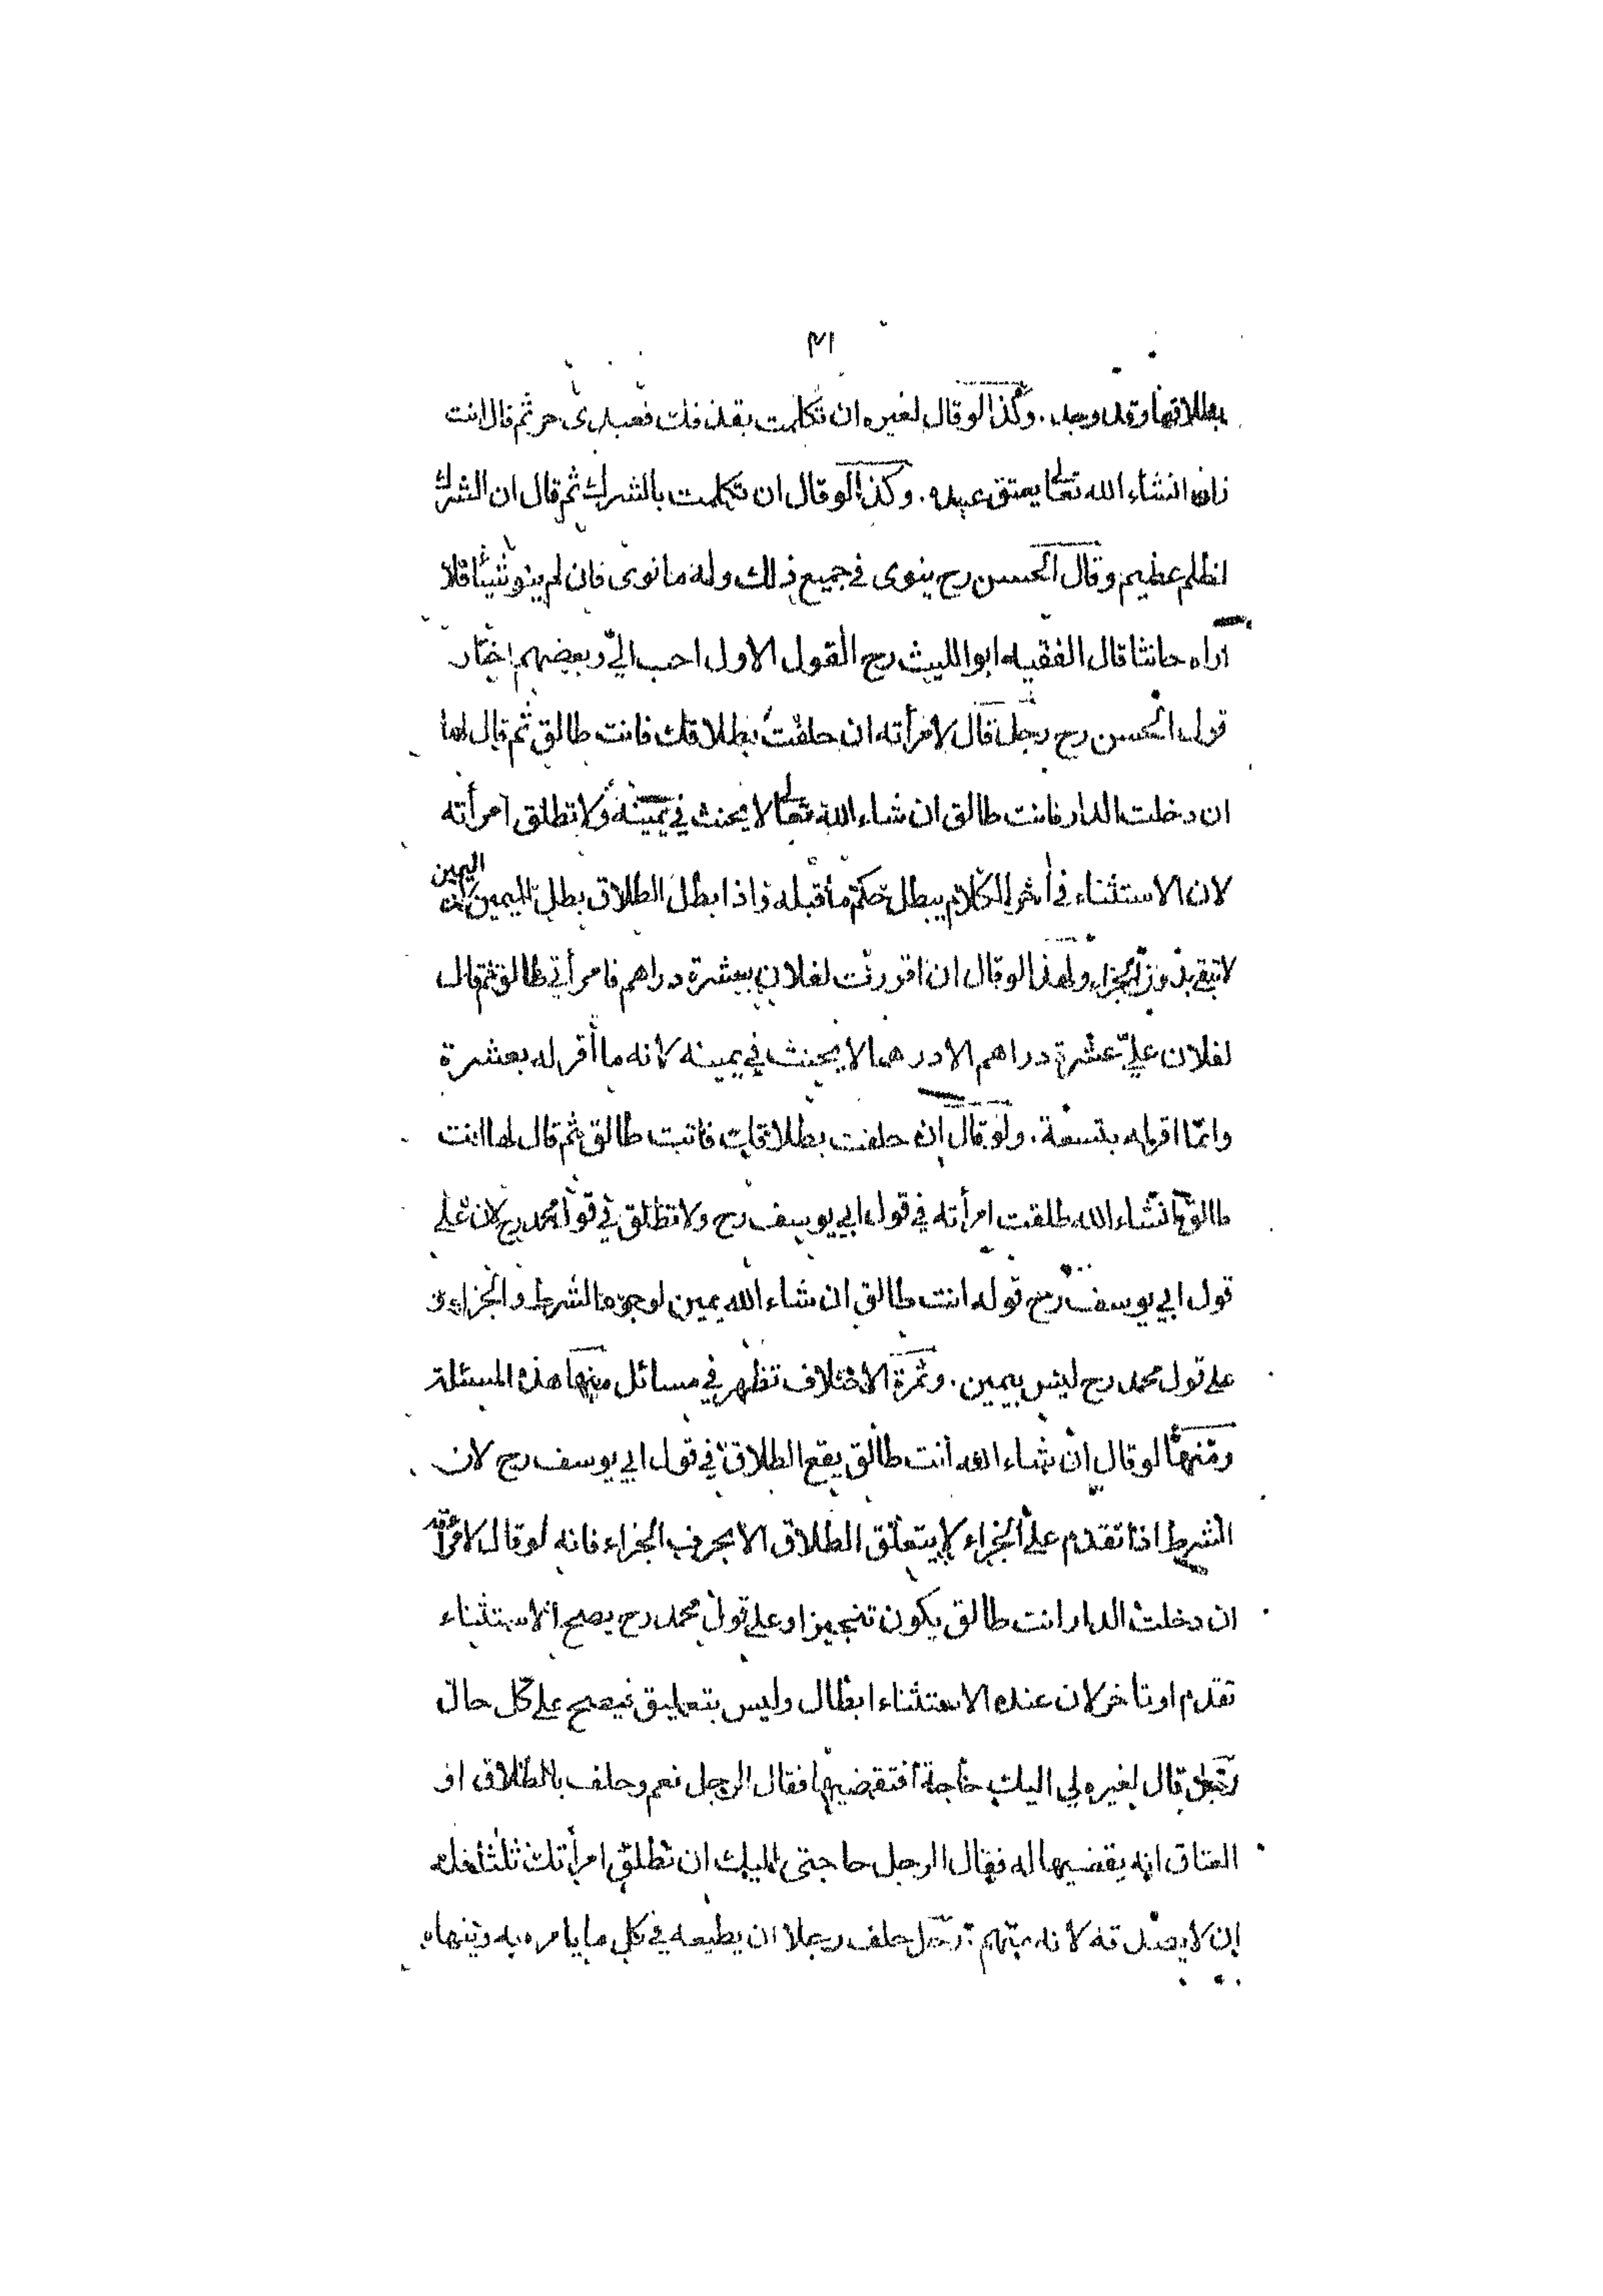 ٣١
بطلاقها وقد وجد. وكذا لو قال لغيره ان تكلمت بقذفك فعبدى حر ثم قال انت
زان انشاء الله تعالى يعتق عبده. وكذا لو قال ان تكلمت بالشرك ثم قال ان الشرك
لظلم عظيم وقال الحسن رح ينوى في جميع ذلك وله ما نوى فان لم ينو شيئا فلا
اراه حانثا قال الفقيه ابو الليث رح القول الاول احب اليّ وبعضهم اختار
قول الحسن رح رجل قال لامرأته ان حلفت بطلاقك فانت طالق ثم قال لها
ان دخلت الدار فانت طالق ان شاء الله تعالى لا يحنث في يمينه ولا تطلق امرأته
لان الاستثناء في اخر الكلام يبطل حكم ما قبله فاذا بطل الطلاق بطل اليمين لان اليمين
لا تبقى بدون الجزاء ولهذا لو قال ان اقررت لفلان بعشرة دراهم فامرأتي طالق ثم قال
لفلان عليّ عشرة دراهم الا درهما لا يحنث في يمينه لانه ما أقر له بعشرة
وانما اقر له بتسعة. ولو قال ان حلفت بطلاقك فانت طالق ثم قال لها انت
طالق انشاء الله طلقت امرأته في قول ابي يوسف رح ولا تطلق في قول محمد رح لان على
قول ابي يوسف رح قوله انت طالق ان شاء الله يمين لوجود الشرط والجزاء و
على قول محمد رح ليس بيمين. وثمرة الاختلاف تظهر في مسائل منها هذه المسئلة
ومنها لو قال ان شاء الله أنت طالق يقع الطلاق في قول ابي يوسف رح لان
الشرط اذا تقدم على الجزاء لا يتعلق الطلاق الا بحرف الجزاء فانه لو قال لامرأته
ان دخلت الدار انت طالق يكون تنجيزا وعلى قول محمد رح يصح الاستثناء
تقدم او تأخر لان عنده الاستثناء ابطال وليس بتعليق فيصح على كل حال
رجل قال لغيره لي اليك حاجة أفتقضيها فقال الرجل نعم وحلف بالطلاق او
العتاق انه يقضيها له فقال الرجل حاجتى اليك ان تطلق امرأتك ثلثا فله
ان لا يصدقه لانه متهم رجل حلف رجلا ان يطيعه في كل ما يامره به وينهاه